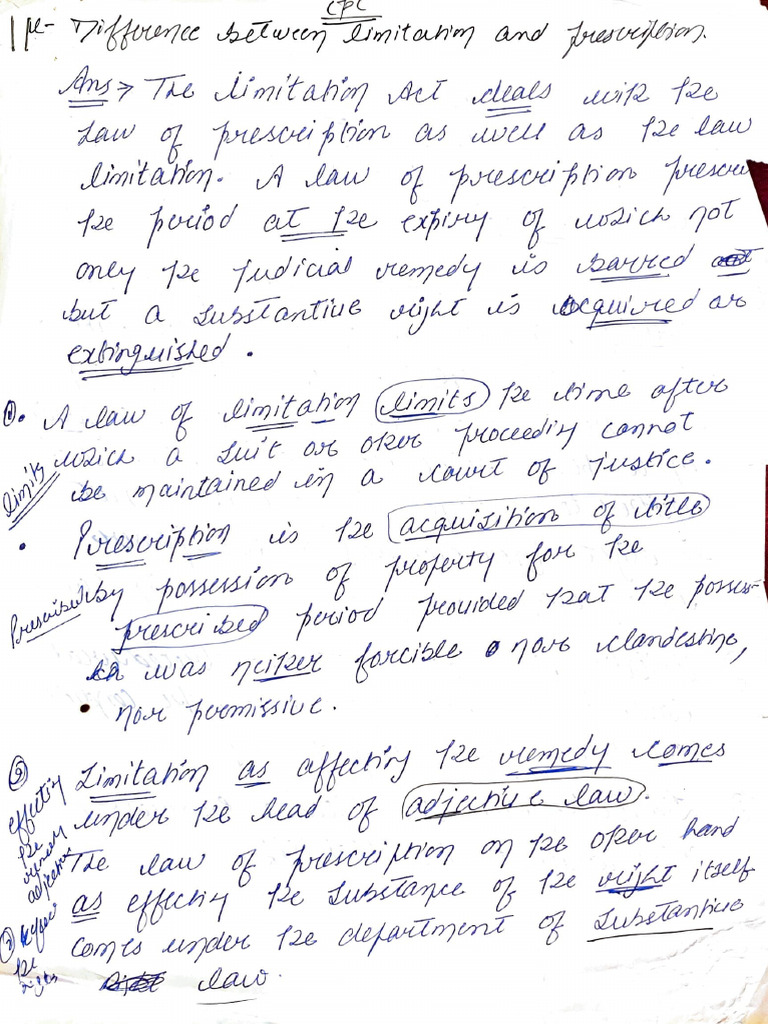 CPC
Difference between limitation and prescription.
Ans → The Limitation Act deals with the
Law of prescription as well as the law
limitation. A law of prescription prescri
the period at the expiry of which not
only the judicial remedy is barred
but a substantive right is acquired or
extinguished.
1. A law of limitation limits the time after
which a suit or other proceeding cannot
limits
be maintained in a court of justice.
• Prescription is the acquisition of title
by possession of property for the
Prescribed
prescribed period provided that the posses-
was neither forcible nor clandestine,
• nor permissive.
2 Limitation as affecting the remedy comes
under the head of adjective law.
effecting
the
remedy
adjective
The law of prescription on the other hand
as effecting the substance of the right itself
comes under the department of substantive
the
rights
law.